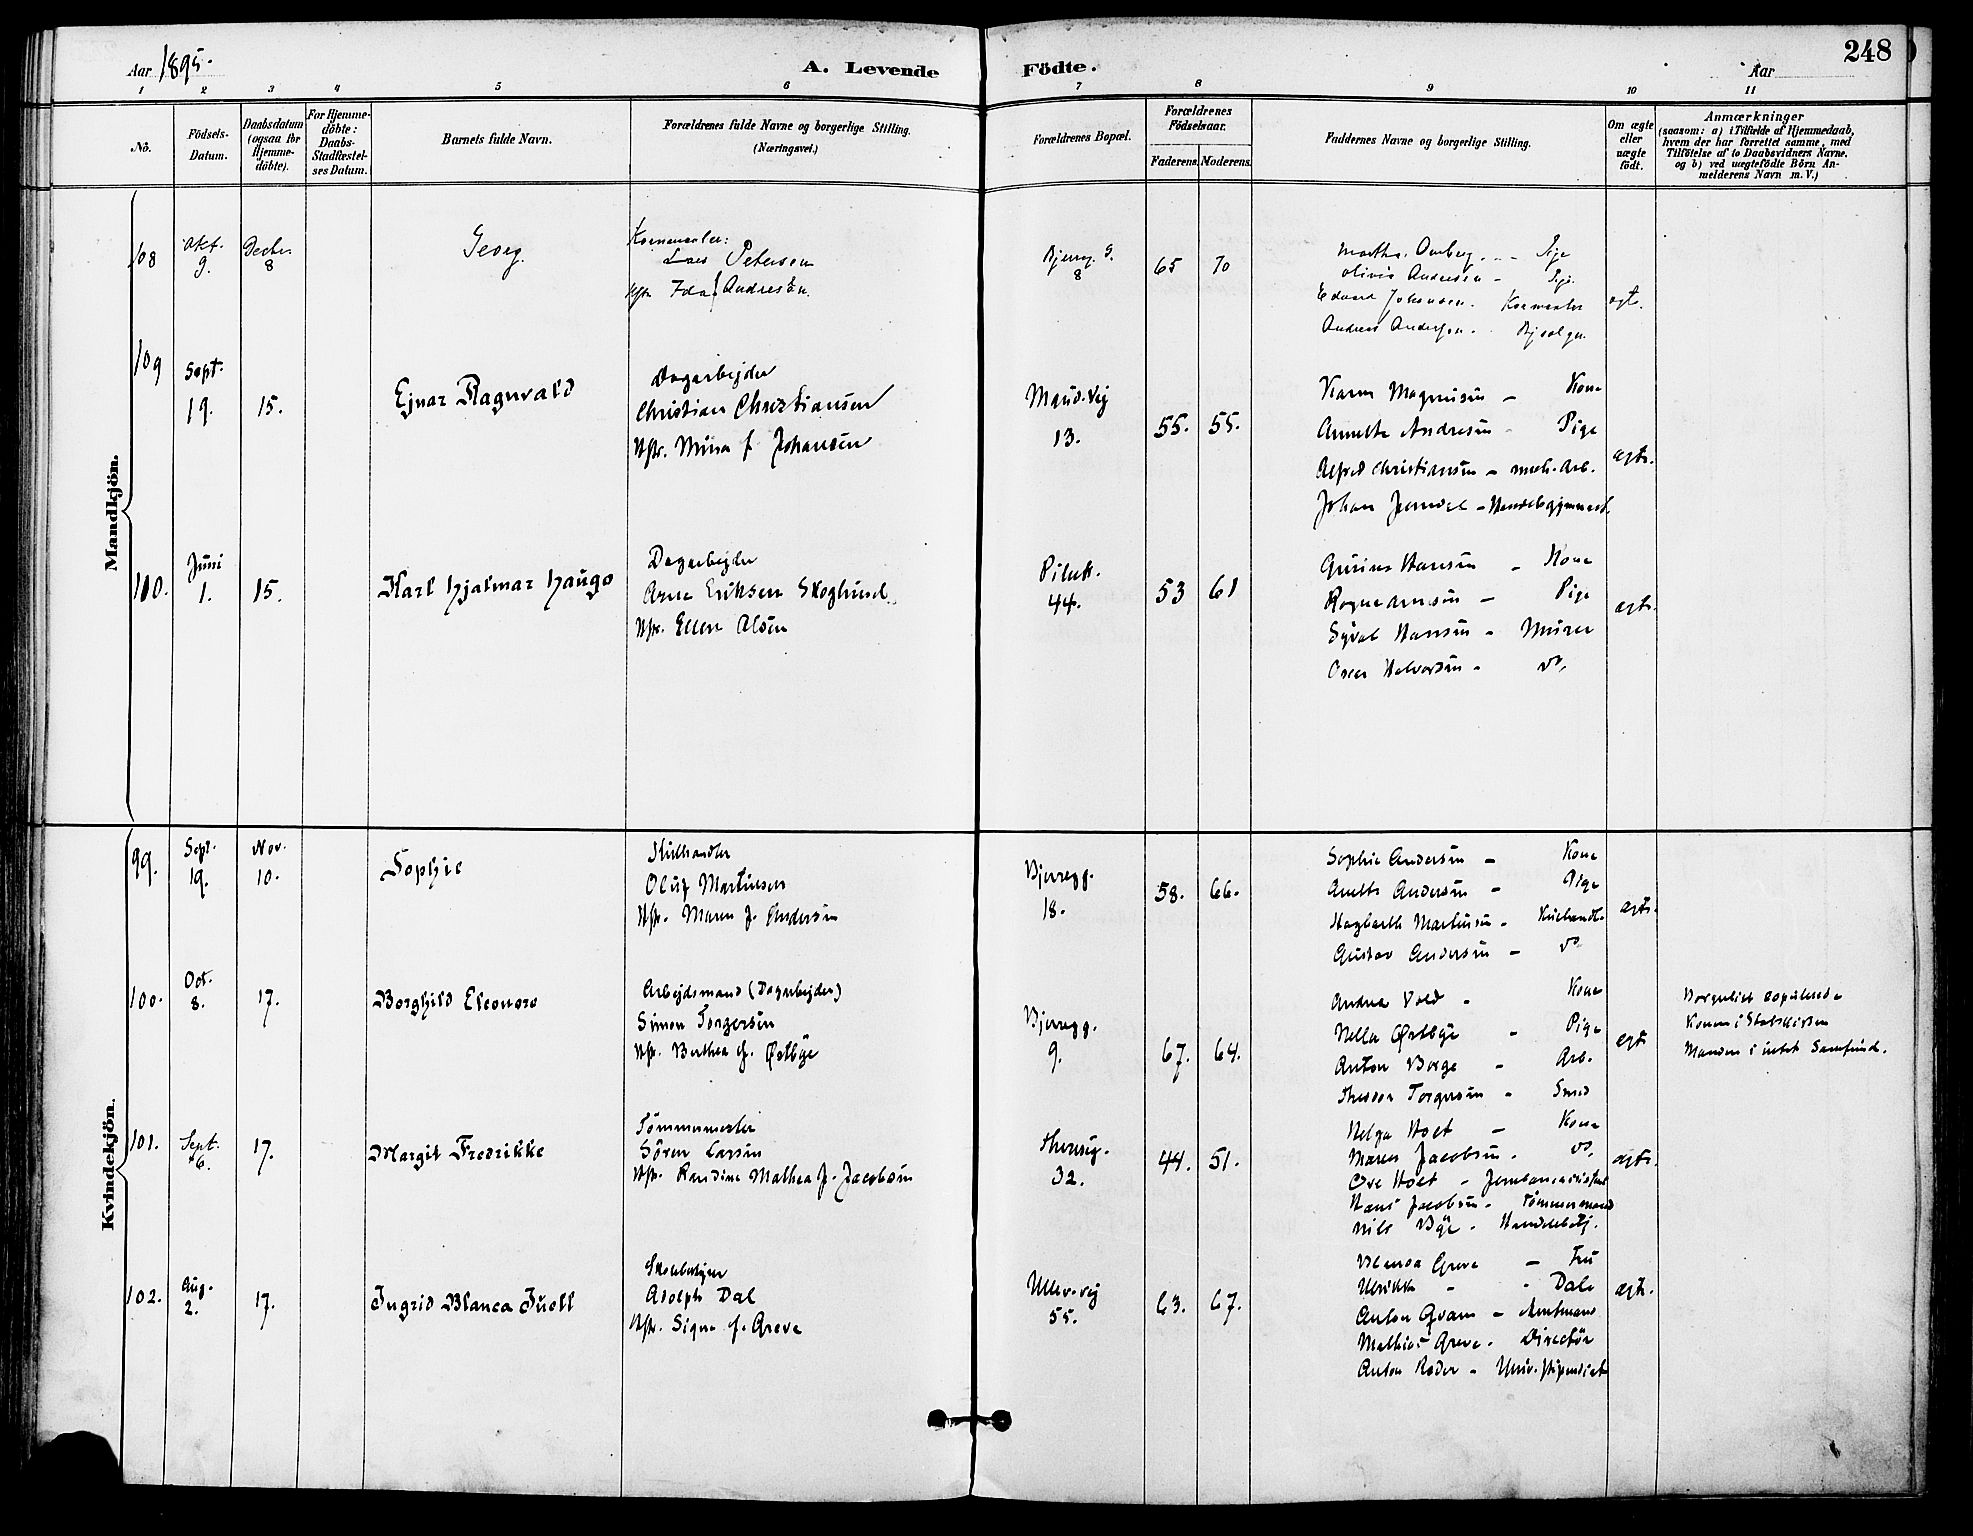 Aar 1895.
A. Levende Födte.
Aar
248
1 2 3 4 5 6 7 8 9 10 11
No.
Födsels-Datum.
Daabsdatum (ogsaa for Hjemme-döbte).
For Hjemme-döbte: Daabs-Stadfæstel-ses Datum.
Barnets fulde Navn.
Forældrenes fulde Navne og borgerlige Stilling.
(Næringsvei.)
Forældrenes Bopæl.
Forældrenes Födselsaar.
Faderens. Moderens.
Faddernes Navne og borgerlige Stilling.
Om ægte eller uægte födt.
Anmærkninger
(saasom: a) i Tilfælde af Hjemmedaab,
hvem der har forrettet samme, med
Tilföielse af to Daabsvidners Navne,
og b) ved uægtefödte Börn An-
melderens Navn m. V.)
Mandkjön.
108
Okt. 9.
Decbr. 8
Georg.
Lars Petersen
Hstr. Ida f. Andresen.
Bjerreg. 8
65 70
Martha - Pige
Olivia Andersen - Pige.
Edvard Johansen.
Andreas Andersen.
ægte.
109
Sept. 19.
15.
Ejnar Ragnvald
Dagarbejder
Christian Christiansen
Hstr. Mina f. Johansen
Maridvej 13.
55. 55.
Karen Magnusen - Kone
Annette Andresen - Pige
Alfred Christiansen - mek. Arb.
Johan
ægte.
110.
Juni 1.
15.
Karl Hjalmar Haugo
Dagarbejder
Arne Eriksen Skoglund
Hstr. Ellen Olsen
Pilestr. 44.
53 61
Gurine Hansen - Kone
Pige
Sigval Hansen - Murer
Oscar Halvorsen - do.
ægte.
Kvindekjön.
99.
Sept. 19.
Nov. 10.
Sophie
Oluf Martinsen
Hstr. Maren f. Andersen
Bjerregg. 18.
58. 66.
Sophie Andersen - Kone
Anette Andersen - Pige
Hagbarth Martinsen -
Gustav Andersen - do
ægte.
100.
Oct. 8.
17.
Borghild Eleonora
Arbejdsmand (Dagarbejder)
Simon Torgersen
Hstr. Berthea f. Østbye
Bjerregg. 9.
67. 64.
Andrea Vold - Kone
Nella Østbye - Pige
Anton Borge - Arb.
Theodor Torgersen - Smed
ægte
Borgerligt copulerede
Konen i Statskirken
Manden i intet Samfund.
101.
Sept. 6.
17.
Margit Fredrikke
Tömmermester
Sören Larsen
Hstr. Randine Mathea f. Jacobsen
Thereseg. 32.
44. 51.
Helga Holt - Kone
Maren Jacobsen - do.
Ove Holt - Jernbaneassistent
Hans Jacobsen - Tömmermand
Nils Bye - Handelsbetj.
ægte.
102.
Aug. 2.
17.
Ingrid Blanca Juell
Skolebestyrer
Adolph Dal
Hstr. Signe f. Greve
Ullev.vej 55.
63. 67.
Blanca Greve - Fru
Ulrikke - - Dale
Anton Qvam - Amtmand
Mathias Greve - Directör
Anton Ræder - Univ. stipendiat
ægte.